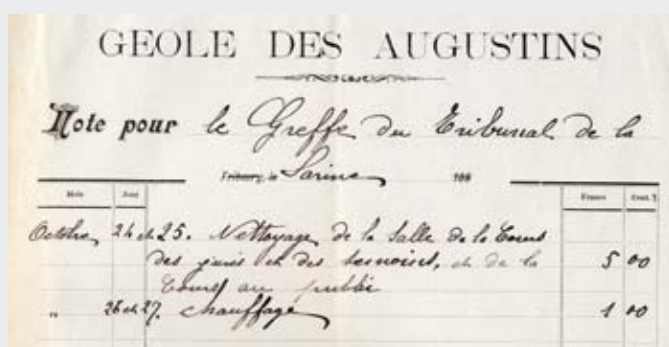 GEOLE DES AUGUSTINS
Note pour le Greffe du Tribunal de la
Fribourg, le Sarine 188
Mois Jour Francs Cent.
Octobre 24 et 25. Nettoyage de la Salle de la Cour
des jurés et des temoins, et de la 5 00
Cour au public
" 26 et 27. Chauffage 1 00